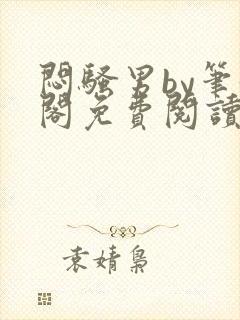 悶騷男by筆
閣免費閱讀
袁婧梟